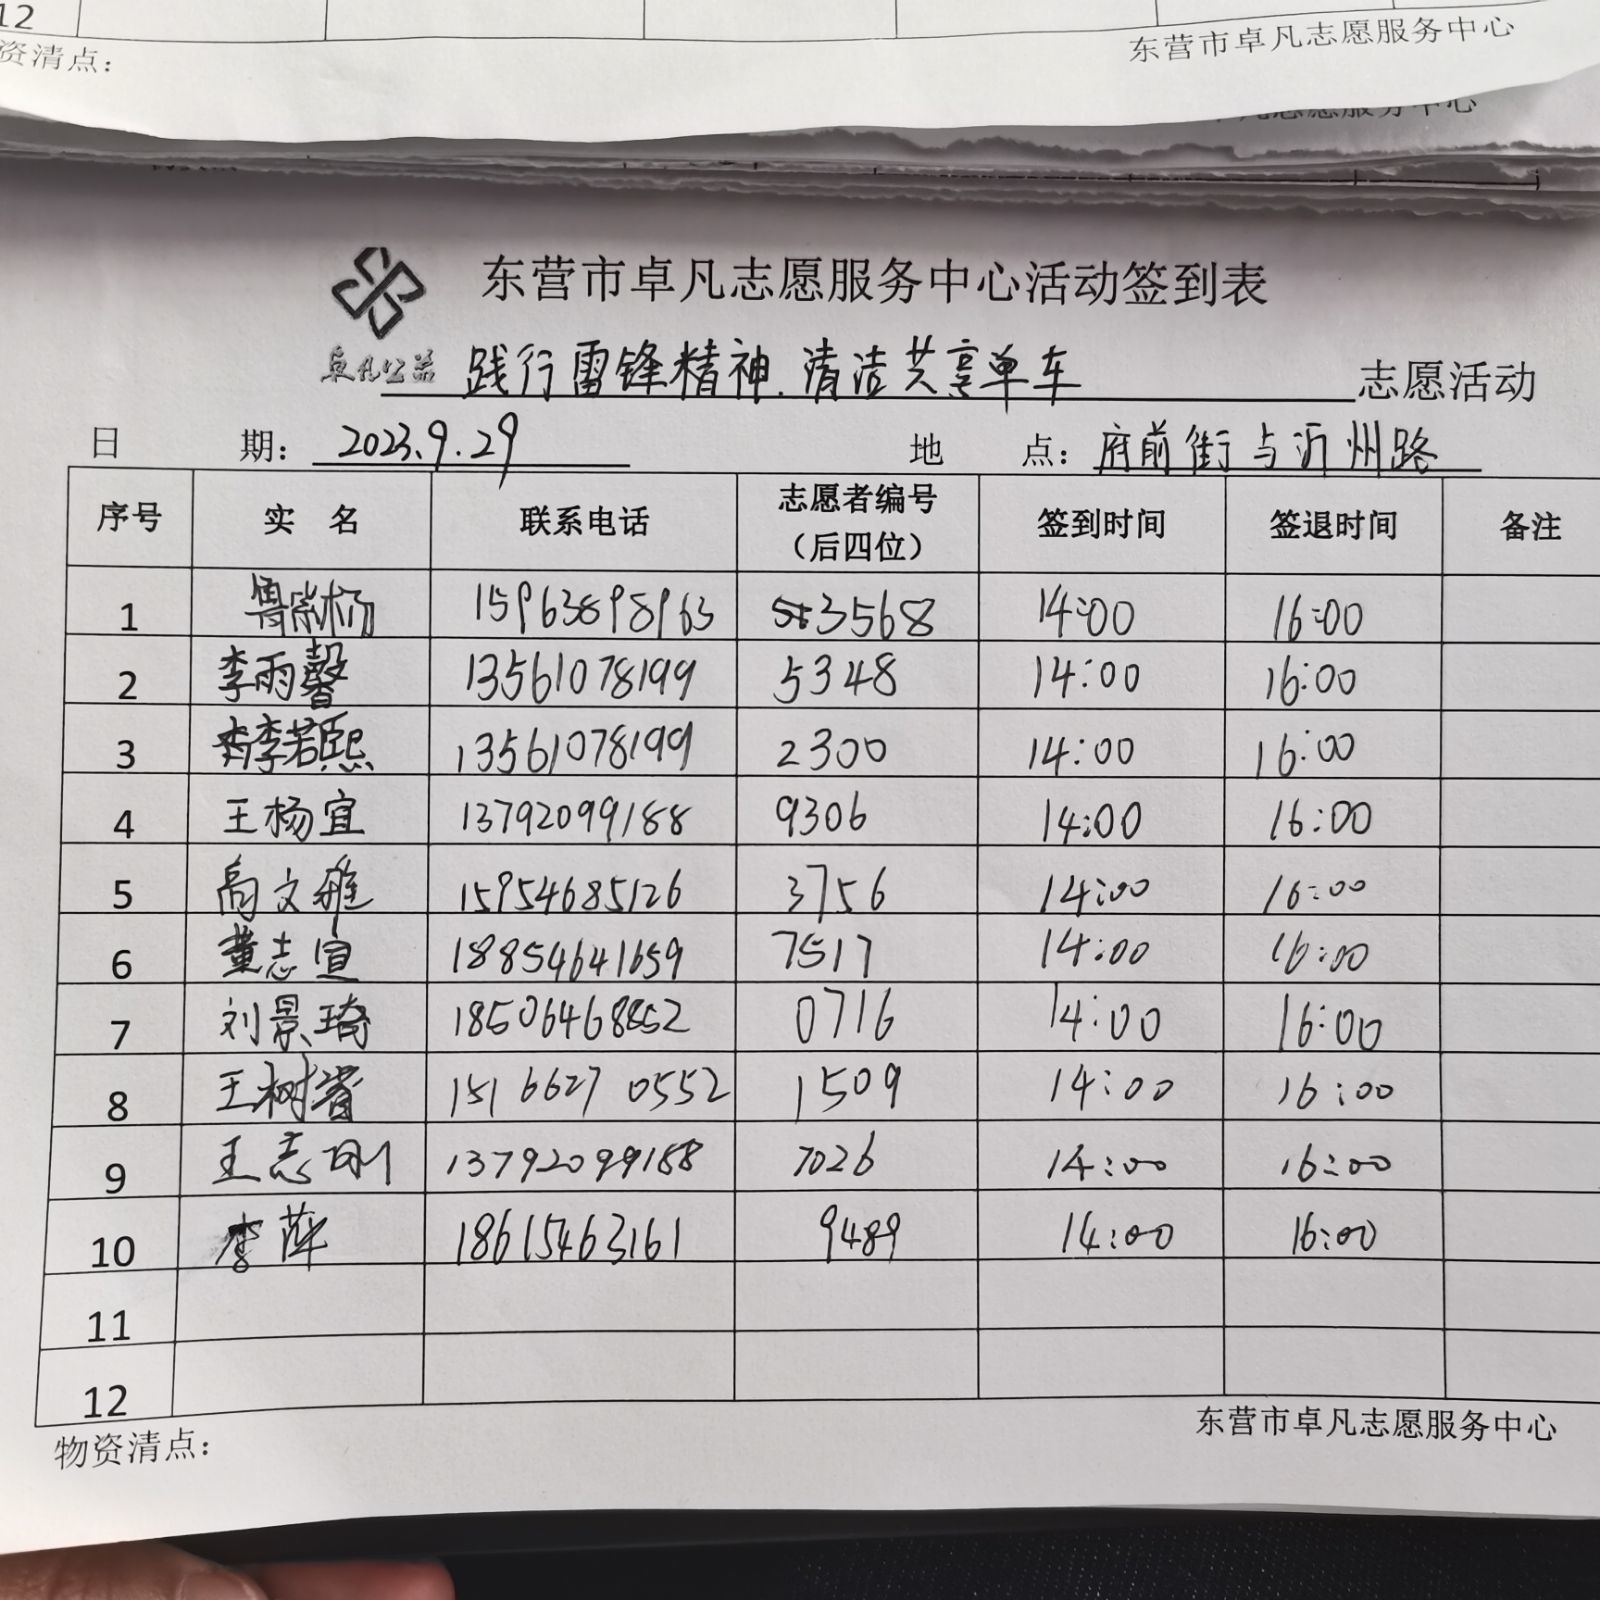 12
资清点： 东营市卓凡志愿服务中心
东营市卓凡志愿服务中心活动签到表
卓凡公益 践行雷锋精神.清洁共享单车 志愿活动
日 期： 2023.9.29 地 点： 府前街与沂州路
序号 实 名 联系电话 志愿者编号（后四位） 签到时间 签退时间 备注
1 鲁崇杨 15963898963 3568 14:00 16:00
2 李雨馨 13561078199 5348 14:00 16:00
3 李若熙 13561078199 2300 14:00 16:00
4 王杨宜 13792099188 9306 14:00 16:00
5 高文雅 15954685126 3756 14:00 16:00
6 董志宣 18854641659 7517 14:00 16:00
7 刘景琦 18506468852 0716 14:00 16:00
8 王树 15166270552 1509 14:00 16:00
9 王志刚 13792099188 7026 14:00 16:00
10 李萍 18615463161 9489 14:00 16:00
11
12
物资清点： 东营市卓凡志愿服务中心